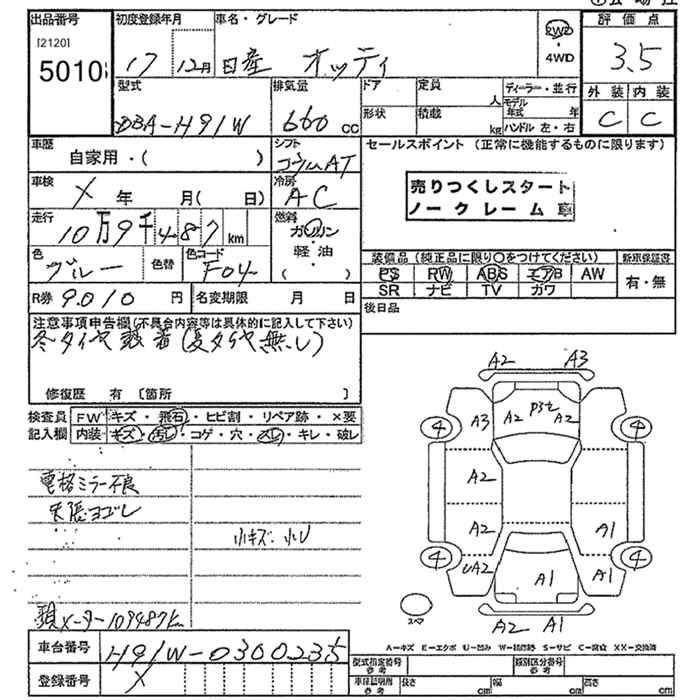 出品番号 初度登録年月 車名・グレード 評価点
[2120] 5010
17 12月 日産 オッティ
2WD ・ 4WD
3.5
型式 排気量 ドア 定員 人 ディーラー・並行
外装 内装
DBA-H91W 660 cc 形状 積載 kg モデル年式 年 ハンドル 左・右
C C
車歴 自家用・( ) シフト コラムAT
セールスポイント (正常に機能するものに限ります)
車検 X 年 月(日) 冷房 AC
売りつくしスタート
ノークレーム車
走行 10万9千487km 燃料 ガソリン・軽油・( )
色 ブルー 色替 色コード F04
装備品(純正品に限り○をつけてください) 新車保証書
PS RW ABS エアB AW 有・無
SR ナビ TV カワ
R券 9010 円 名変期限 月 日
後日品
注意事項申告欄(不具合内容等は具体的に記入して下さい)
冬タイヤ装着(夏タイヤ無し)
修復歴 有 〔箇所 〕
検査員 FW キズ・飛石・ヒビ割・リペア跡・×要
記入欄 内装 キズ・汚レ・コゲ・穴・スレ・キレ・破レ
電格ミラー不良
天張ヨゴレ
小キズ、小U
メーター109487km
A2 A3
4 A3 A2 A2 4
A2
A2 A1
4 UA2 A1 A1 4
スペア
A2 A1
A-キズ E-エクボ U-凹み S-サビ C-腐食 XX-交換済
車台番号 H91W-0300235
登録番号 X
型式指定番号 参考 類別区分番号 参考
車体証明用 参考 長さ cm 幅 cm 高さ cm